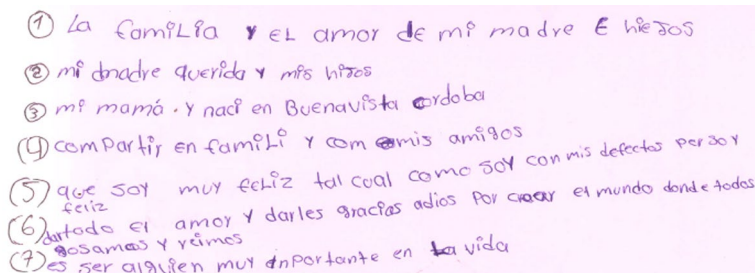 ① La familia y el amor de mi madre E hiejos
② mi dnadre querida y mis hijos
③ mi mamá. y naci en Buenavista cordoba
(4) compartir en famili y com mis amigos
(5) que soy muy feliz tal cual como soy con mis defectos per soy
feliz
(6) dar todo el amor y darles gracias adios por crear el mundo donde todos
gosamos y reimos
(7) es ser alguien muy inportante en la vida